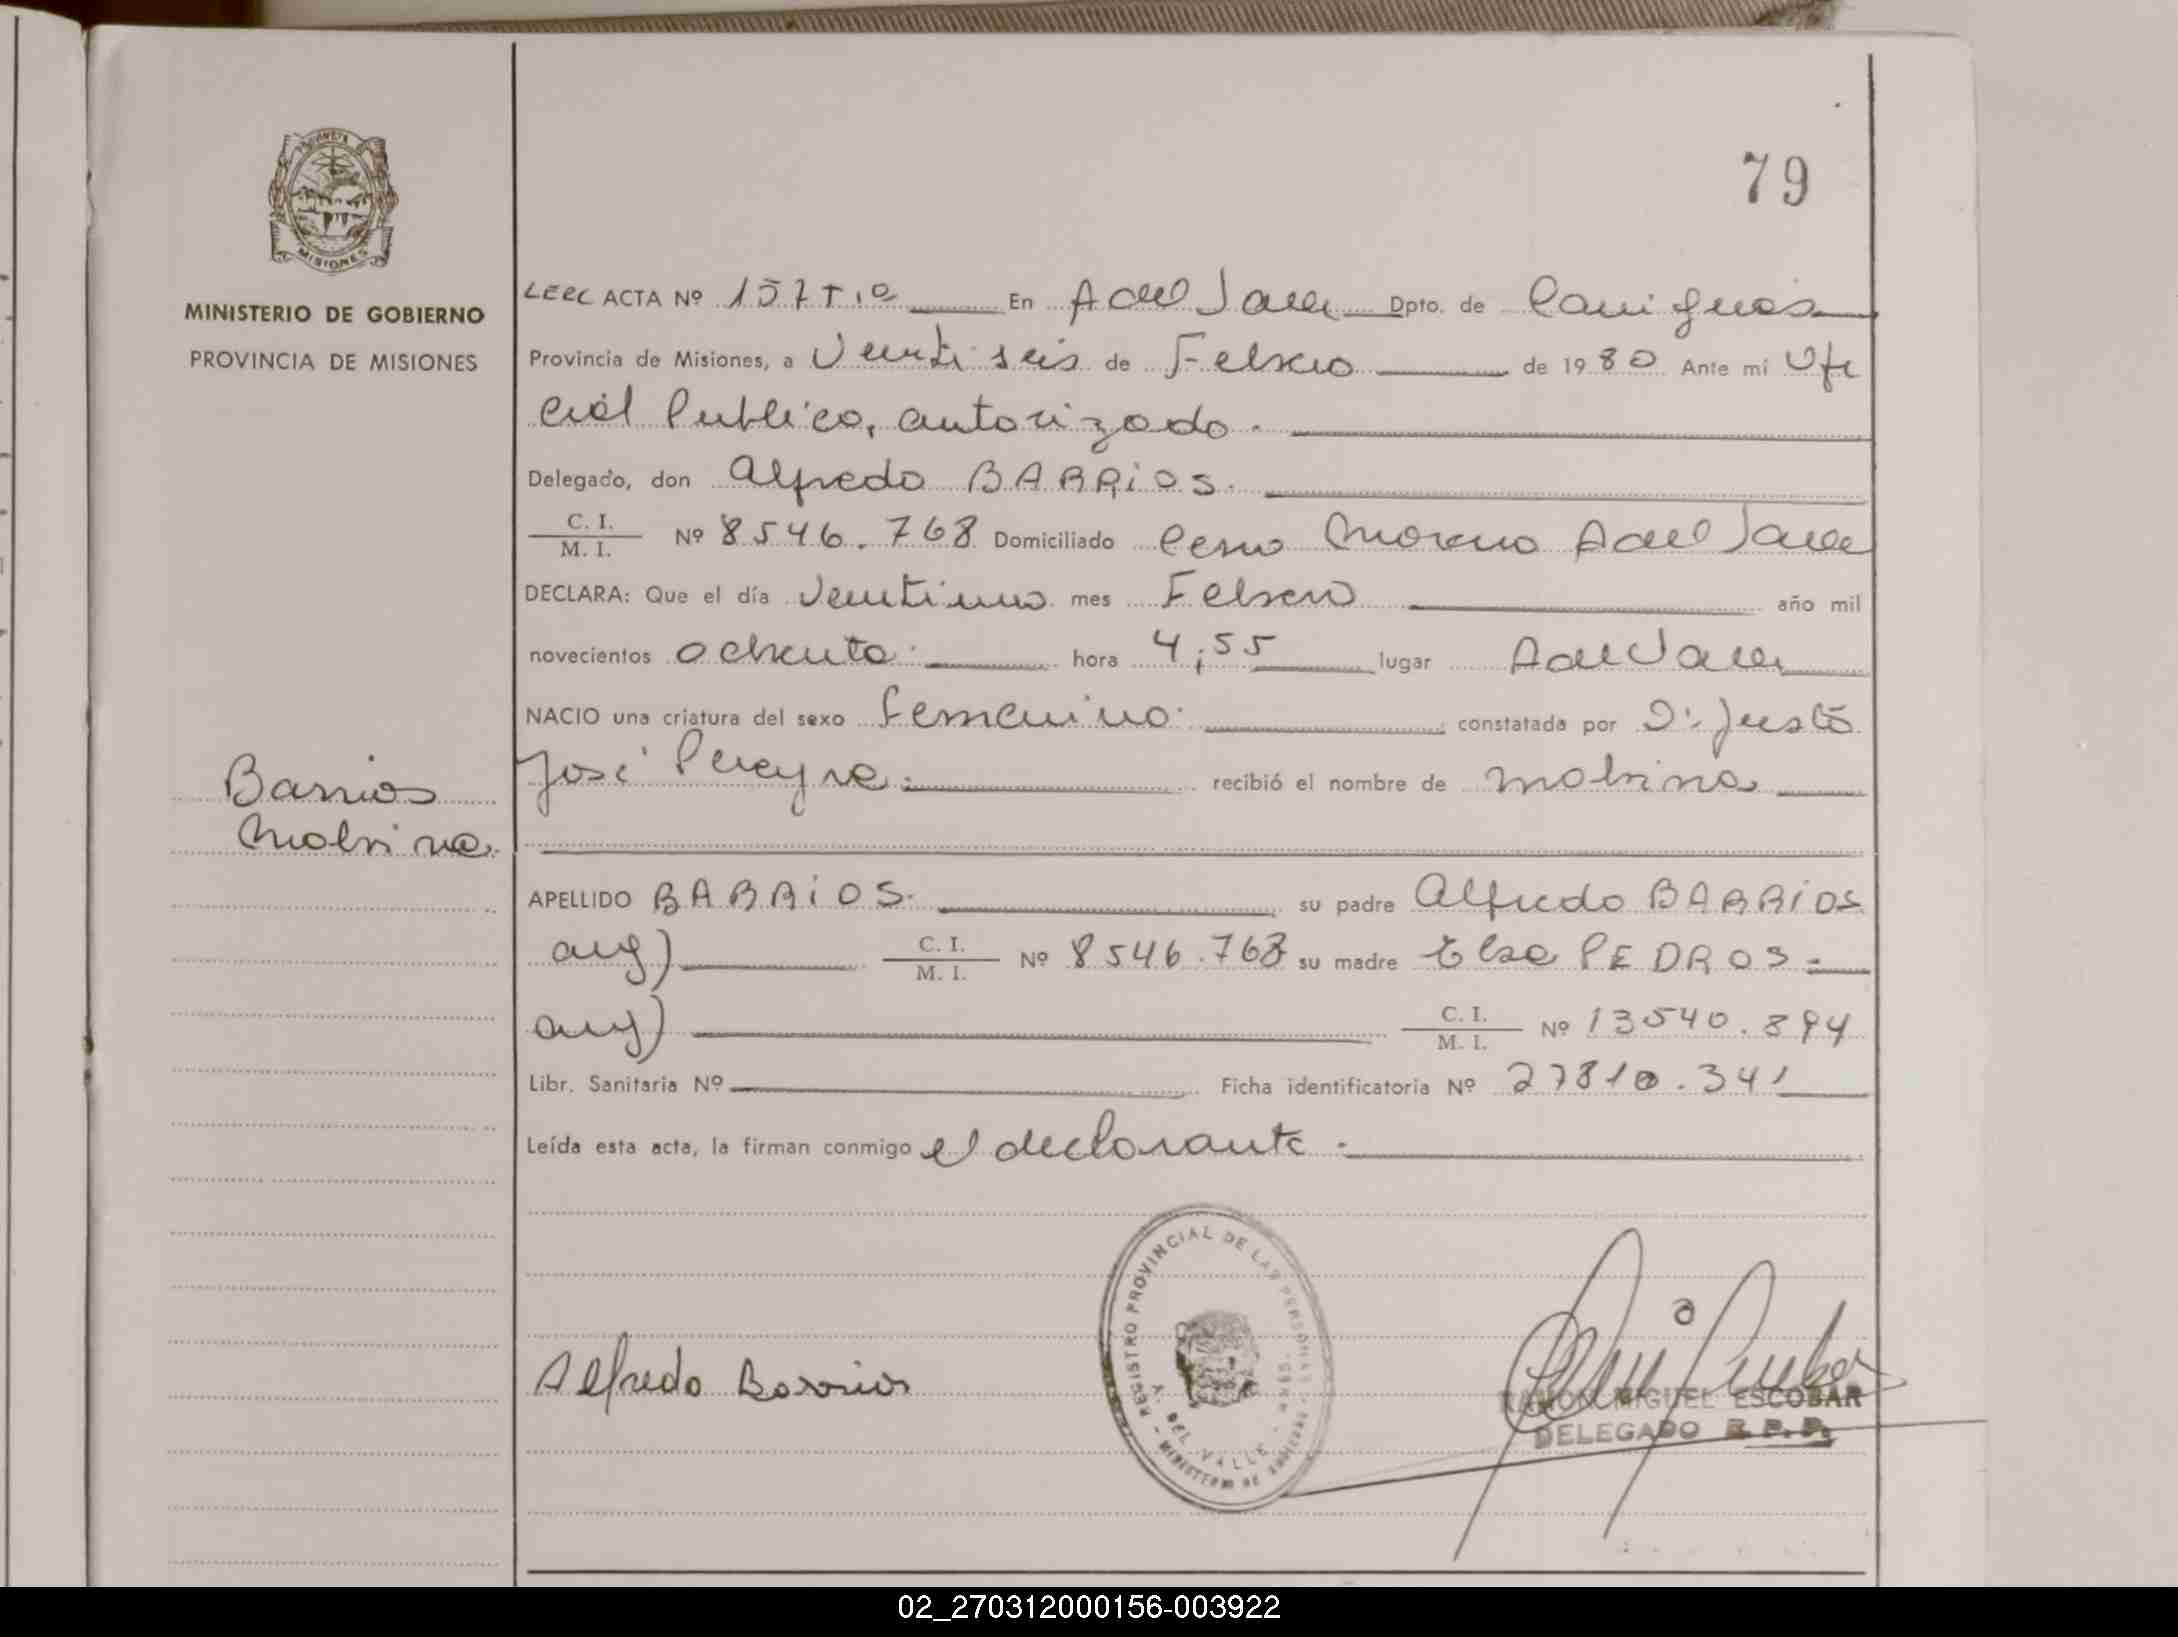 79
MINISTERIO DE GOBIERNO
PROVINCIA DE MISIONES
ACTA Nº 157 T.1º En A del Valle Dpto. de Cainguás
Provincia de Misiones, a Veintiseis de Febrero de 1980 Ante mí Ofi
cial Publico, autorizado.
Delegado, don Alfredo BARRIOS.
C. I.
M. I. Nº 8546.768 Domiciliado Moreno A del Valle
DECLARA: Que el día Veintiuno mes Febrero año mil
novecientos ochenta. hora 4,55 lugar A del Valle
NACIO una criatura del sexo femenino. constatada por Dr. Justo
José Pereyra. recibió el nombre de Malvina
Barrios
Malvina.
APELLIDO BARRIOS. su padre Alfredo BARRIOS
arg) C. I.
M. I. Nº 8546.768 su madre Elsa PEDROS.
arg) C. I.
M. I. Nº 13540.894
Libr. Sanitaria Nº Ficha identificatoria Nº 27810.341
Leída esta acta, la firman conmigo el declarante.
Alfredo Barrios
REGISTRO PROVINCIAL DE LAS PERSONAS
A. DEL VALLE - MNES.
MINISTERIO DE GOBIERNO
RAMON MIGUEL ESCOBAR
DELEGADO R.P.P.
MISIONES
02_270312000156-003922